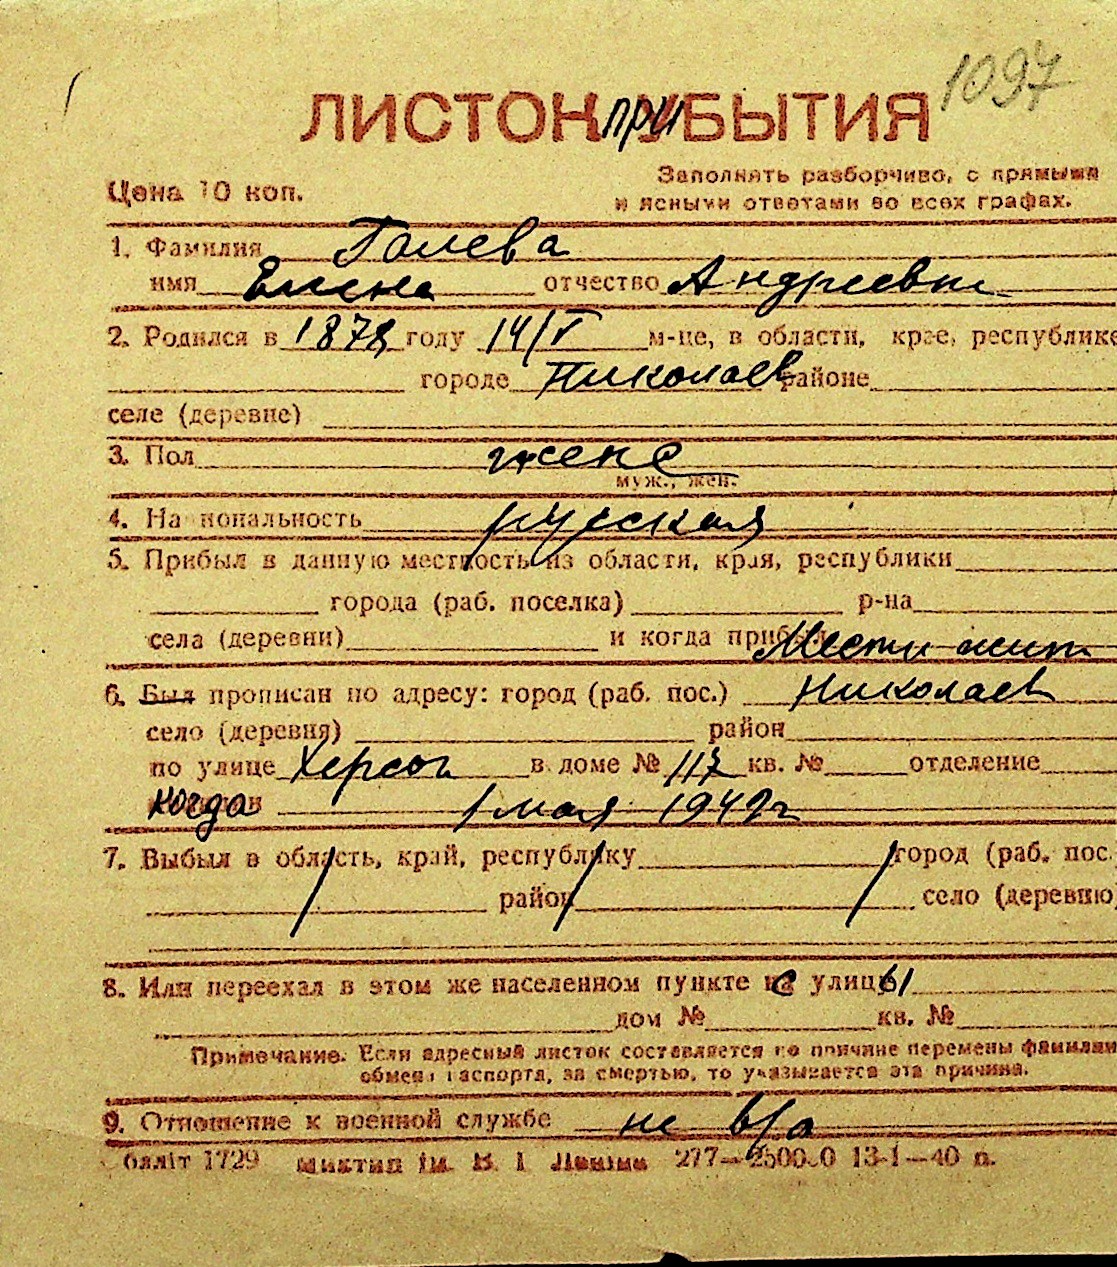 1097
ЛИСТОК ПРИБЫТИЯ
Цена 10 коп.
Заполнять разборчиво, с прямыми
и ясными ответами во всех графах.
1. Фамилия Галева
имя Елена отчество Андреевн
2. Родился в 1878 году 14/V м-це, в области, крае, республике
городе Николаев районе
селе (деревне)
3. Пол женс
муж., жен.
4. Национальность русская
5. Прибыл в данную местность из области, края, республики
города (раб. поселка) р-на
села (деревни) и когда прибыл Местн жит
6. Был прописан по адресу: город (раб. пос.) Николаев
село (деревня) район
по улице Херсон в доме № 117 кв. № отделение
когда 1 мая 1942 г
7. Выбыл в область, край, республику город (раб. пос.
район село (деревню)
8. Или переехал в этом же населенном пункте с улицы
дом № кв. №
Примечание. Если адресный листок составляется по причине перемены фамилии
обмена паспорта, за смертью, то указывается эта причина.
9. Отношение к военной службе не в/о
бліт 1729 Миктип ім. В. І Леніна 277—2500.0 13-1—40 п.